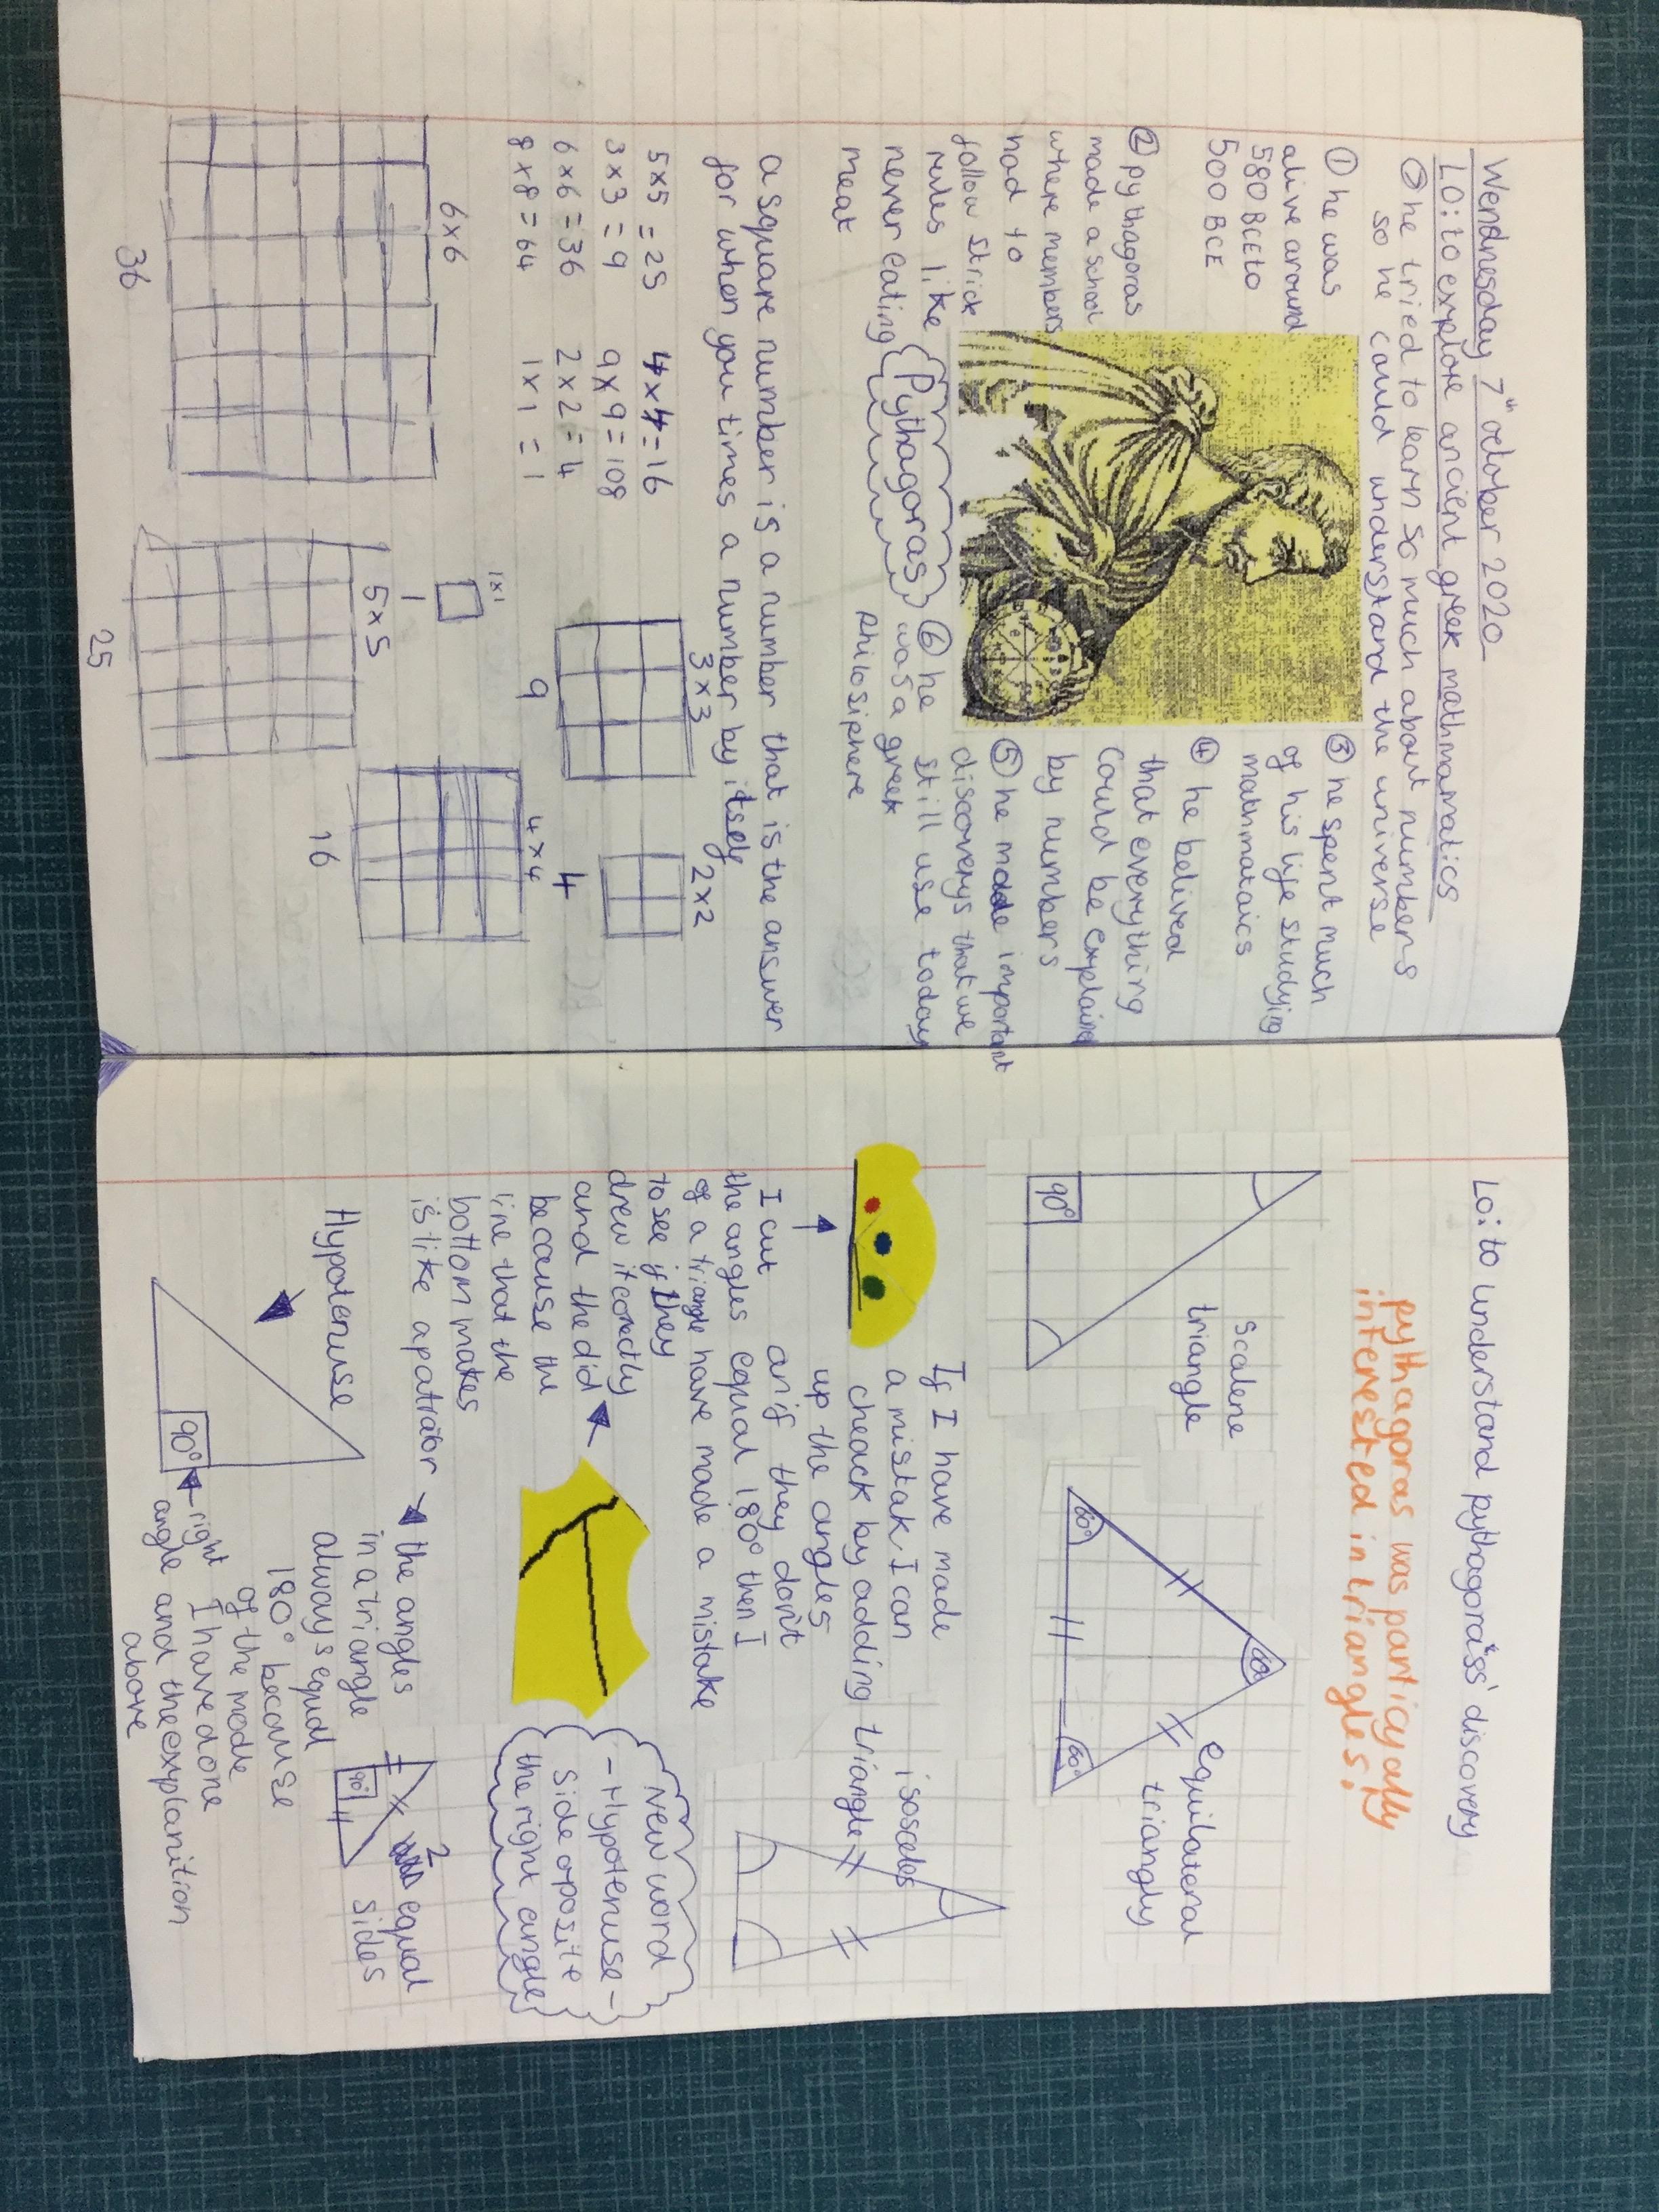 Wendnesday 7th october 2020
LO: to explore ancient greek mathmamatics
⑦ he tried to learn so much about numbers
so he could understand the universe
① he was
alive around
580 BCE to
500 BCE
② pythagoras
made a school
where members
had to
follow strick
rules like
never eating
meat
Pythagoras
③ he spent much
of his life studying
mathmataics
④ he belived
that everything
could be explained
by numbers
⑤ he made important
discoverys that we
still use today
⑥ he
was a greek
philosiphere
a square number is a number that is the answer
for when you times a number by itself
5 x 5 = 25 4 x 4 = 16
3 x 3 = 9 9 x 9 = 108
6 x 6 = 36 2 x 2 = 4
8 x 8 = 64 1 x 1 = 1
3 x 3
9
2 x 2
4
1x1
1
6 x 6
36
5 x 5
25
4 x 4
16
LO: to understand pythagoras's' discovery
pythagoras was particyally
interested in triangles!
scalene
triangle
90°
equilateral
triangly
60°
60°
60°
If I have made
a mistak I can
cheack by adding
up the angles
an if they don't
equal 180° then I
have made a mistake
isosceles
triangle
I cut
the angles
of a triangle
to see if they
drew it corectly
and the did
because the
line that the
bottom makes
is like a patrator
New word
- Hypotenuse -
side oposite
the right angle
Hypotenuse
90°
right
angle
the angles
in a triangle
always equal
180° because
of the mode
I have done
and the explanition
above
90°
2 equal
sides